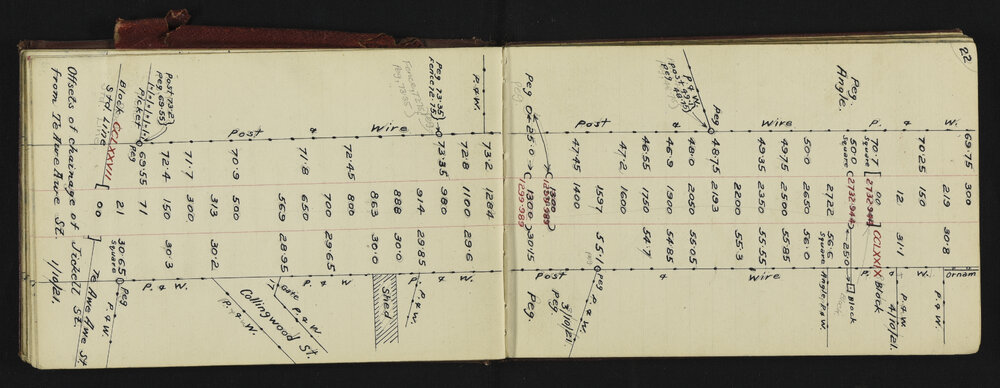 22
69.75 300
219 30.8 ornam
70.25 150 P. & W.
12 31.1 P. & W.
4/10/21.
CCLXXIX Block
70.7 [ 00 ]
Square 2732.944
Peg
Angle.
50.0 (2732.944) ← 25.0 → Block
Square
2722 56.6 Angle, P. & W.
Square
Post & Wire P. & W.
50.0 2650 56.0
49.75 2500 55.85
49.35 2350 55.55
2200 55.3
Peg 48.75 2193
P. & W.
post 49.45
peg 48
48.0 2050 55.05
46.9 1900 54.85
46.55 1750 54.7
47.2 1600
3/10/21.
P. & W.
1597 55.1 Peg
47.45 1400
Post & Wire
1300
1299.989
Peg 0 25.0 → ( 1300 ) 30.15 Peg.
Peg 1299.989
73.2 1284
P. & W.
72.8 1100 29.6 P. & W.
Peg 73.35
Fence 72.75
73.35 980
914 29.85 P. & W.
Peg 73.55
888 30.0
863 30.0 Shed
72.45 800
Post & Wire
700 29.65 P. & W.
71.8 650
569 28.95 Gate 17 P. & W.
Collingwood St.
70.9 500 P. & W.
313 30.2
71.7 300 P. & W.
Post 73.2
Peg 69.55
72.4 150 30.3
Picket
69.55 71
Peg
Block CCLXXVIII 21 30.65 Peg
Std Line Square P. & W.
[ 00 ] Te Awe Awe St
Offsets of chainage of Jickell St.
from Te Awe Awe St. 1/10/21.